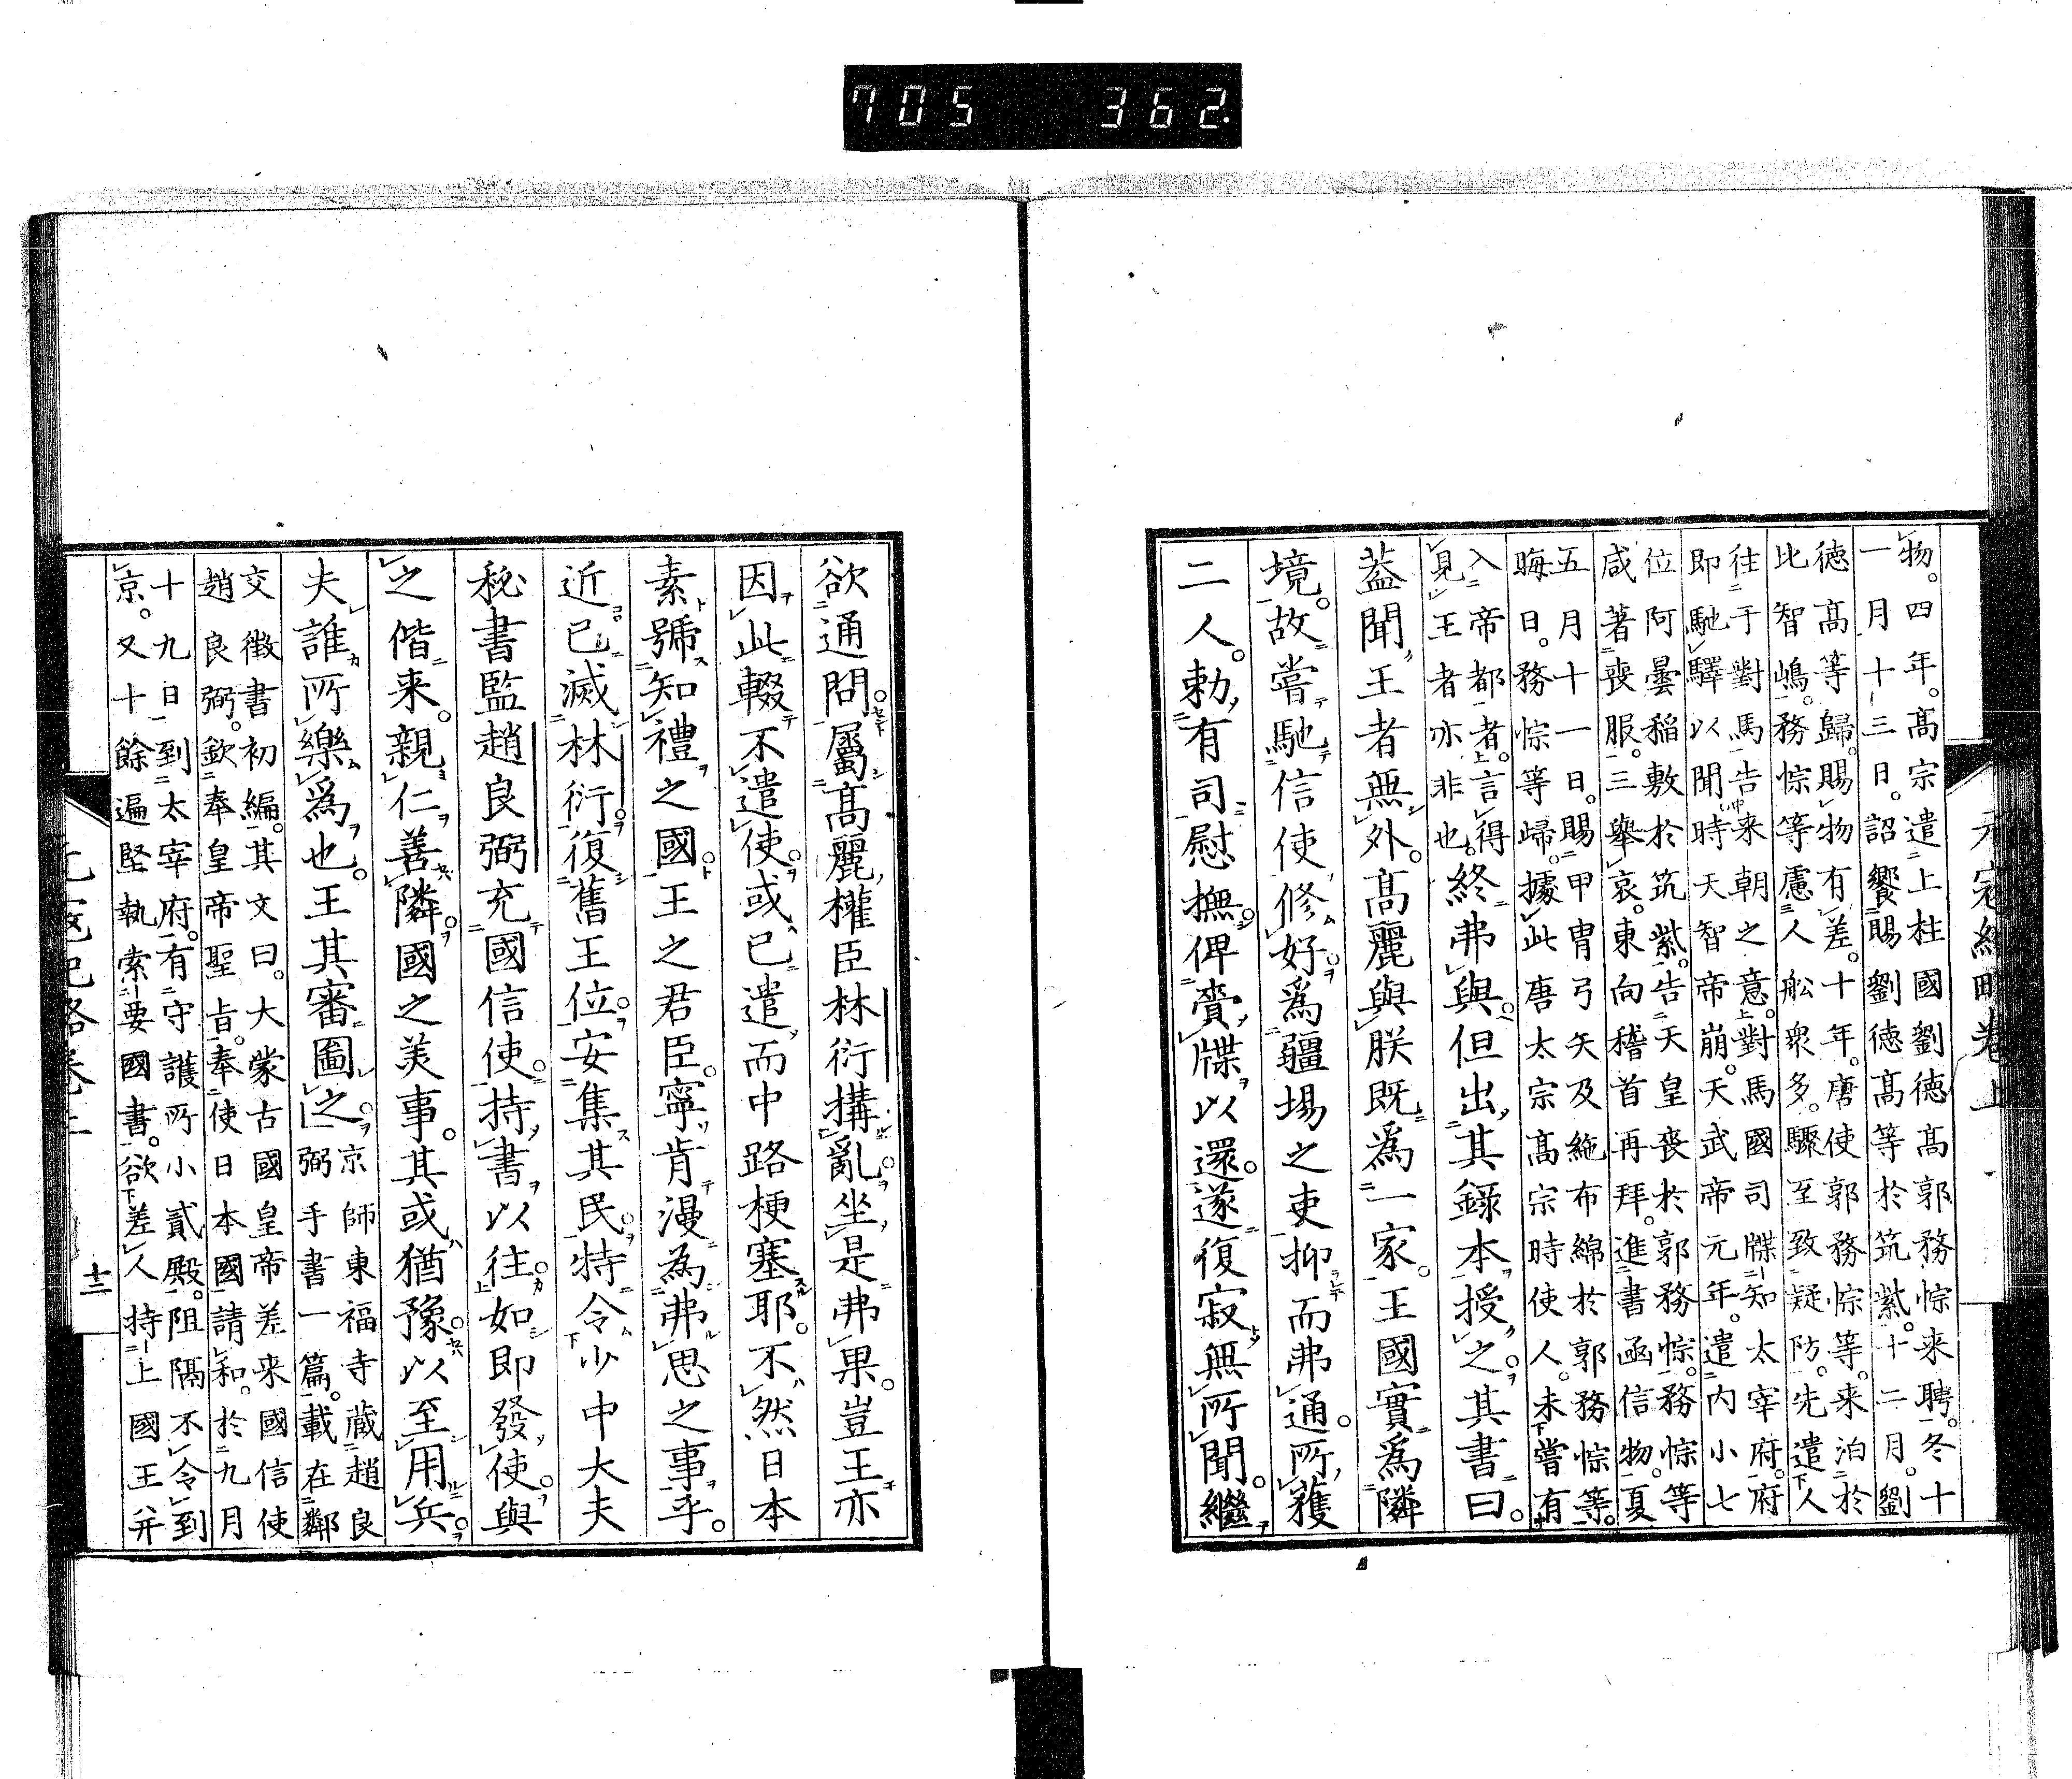 705 362
元寇紀略卷上
物。四年。高宗遣上柱國劉德高郭務悰来聘。冬十
一月十三日。詔饗賜劉德高等於筑紫。十二月。劉
德高等歸。賜物有差。十年。唐使郭務悰等。来泊於
比智嶋。務悰等慮人舩衆多。驟至致疑防。先遣人
往于對馬告来朝之意。對馬國司牒知太宰府。府
即馳驛以聞時天智帝崩。天武帝元年。遣内小七
位阿曇稲敷於筑紫。告天皇喪於郭務悰。務悰等
咸著喪服。三舉哀。東向稽首再拜。進書函信物。夏
五月十一日。賜甲冑弓矢及絁布綿於郭務悰等。
晦日。務悰等歸。據此唐太宗高宗時使人。未嘗有
入帝都者。言得
見王者亦非也。終弗與。但出其錄本授之。其書曰。
蓋聞王者無外。高麗與朕既爲一家。王國實爲隣
境。故嘗馳信使修好。爲疆場之吏抑而弗通。所獲
二人。勅有司慰撫。俾賫牒以還。遂復寂無所聞。繼
欲通問。屬高麗權臣林衍搆亂。坐是弗果。豈王亦
因此輟不遣使。或已遣而中路梗塞耶。不然日本
素號知禮之國。王之君臣。寧肯漫為弗思之事乎。
近已滅林衍。復舊王位。安集其民。特令少中大夫
秘書監趙良弼充國信使。持書以往。如即發使與
之偕来。親仁善隣。國之美事。其或猶豫。以至用兵。
夫誰所樂爲也。王其審圖之。京師東福寺蔵趙良
弼手書一篇。載在鄰
交徵書初編。其文曰。大蒙古國皇帝差来國信使
趙良弼。欽奉皇帝聖旨。奉使日本國請和。於九月
十九日。到太宰府。有守護所小貳殿。阻隔不令到
京。又十餘遍堅執索要國書。欲差人持上國王并
元寇紀略卷上
十三